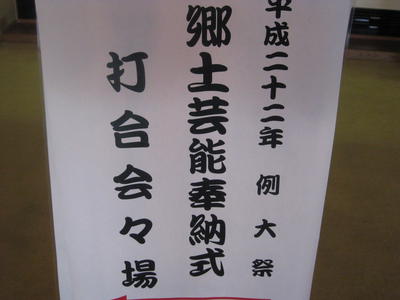 平成二十二年 例大祭
郷土芸能奉納式
打合会々場